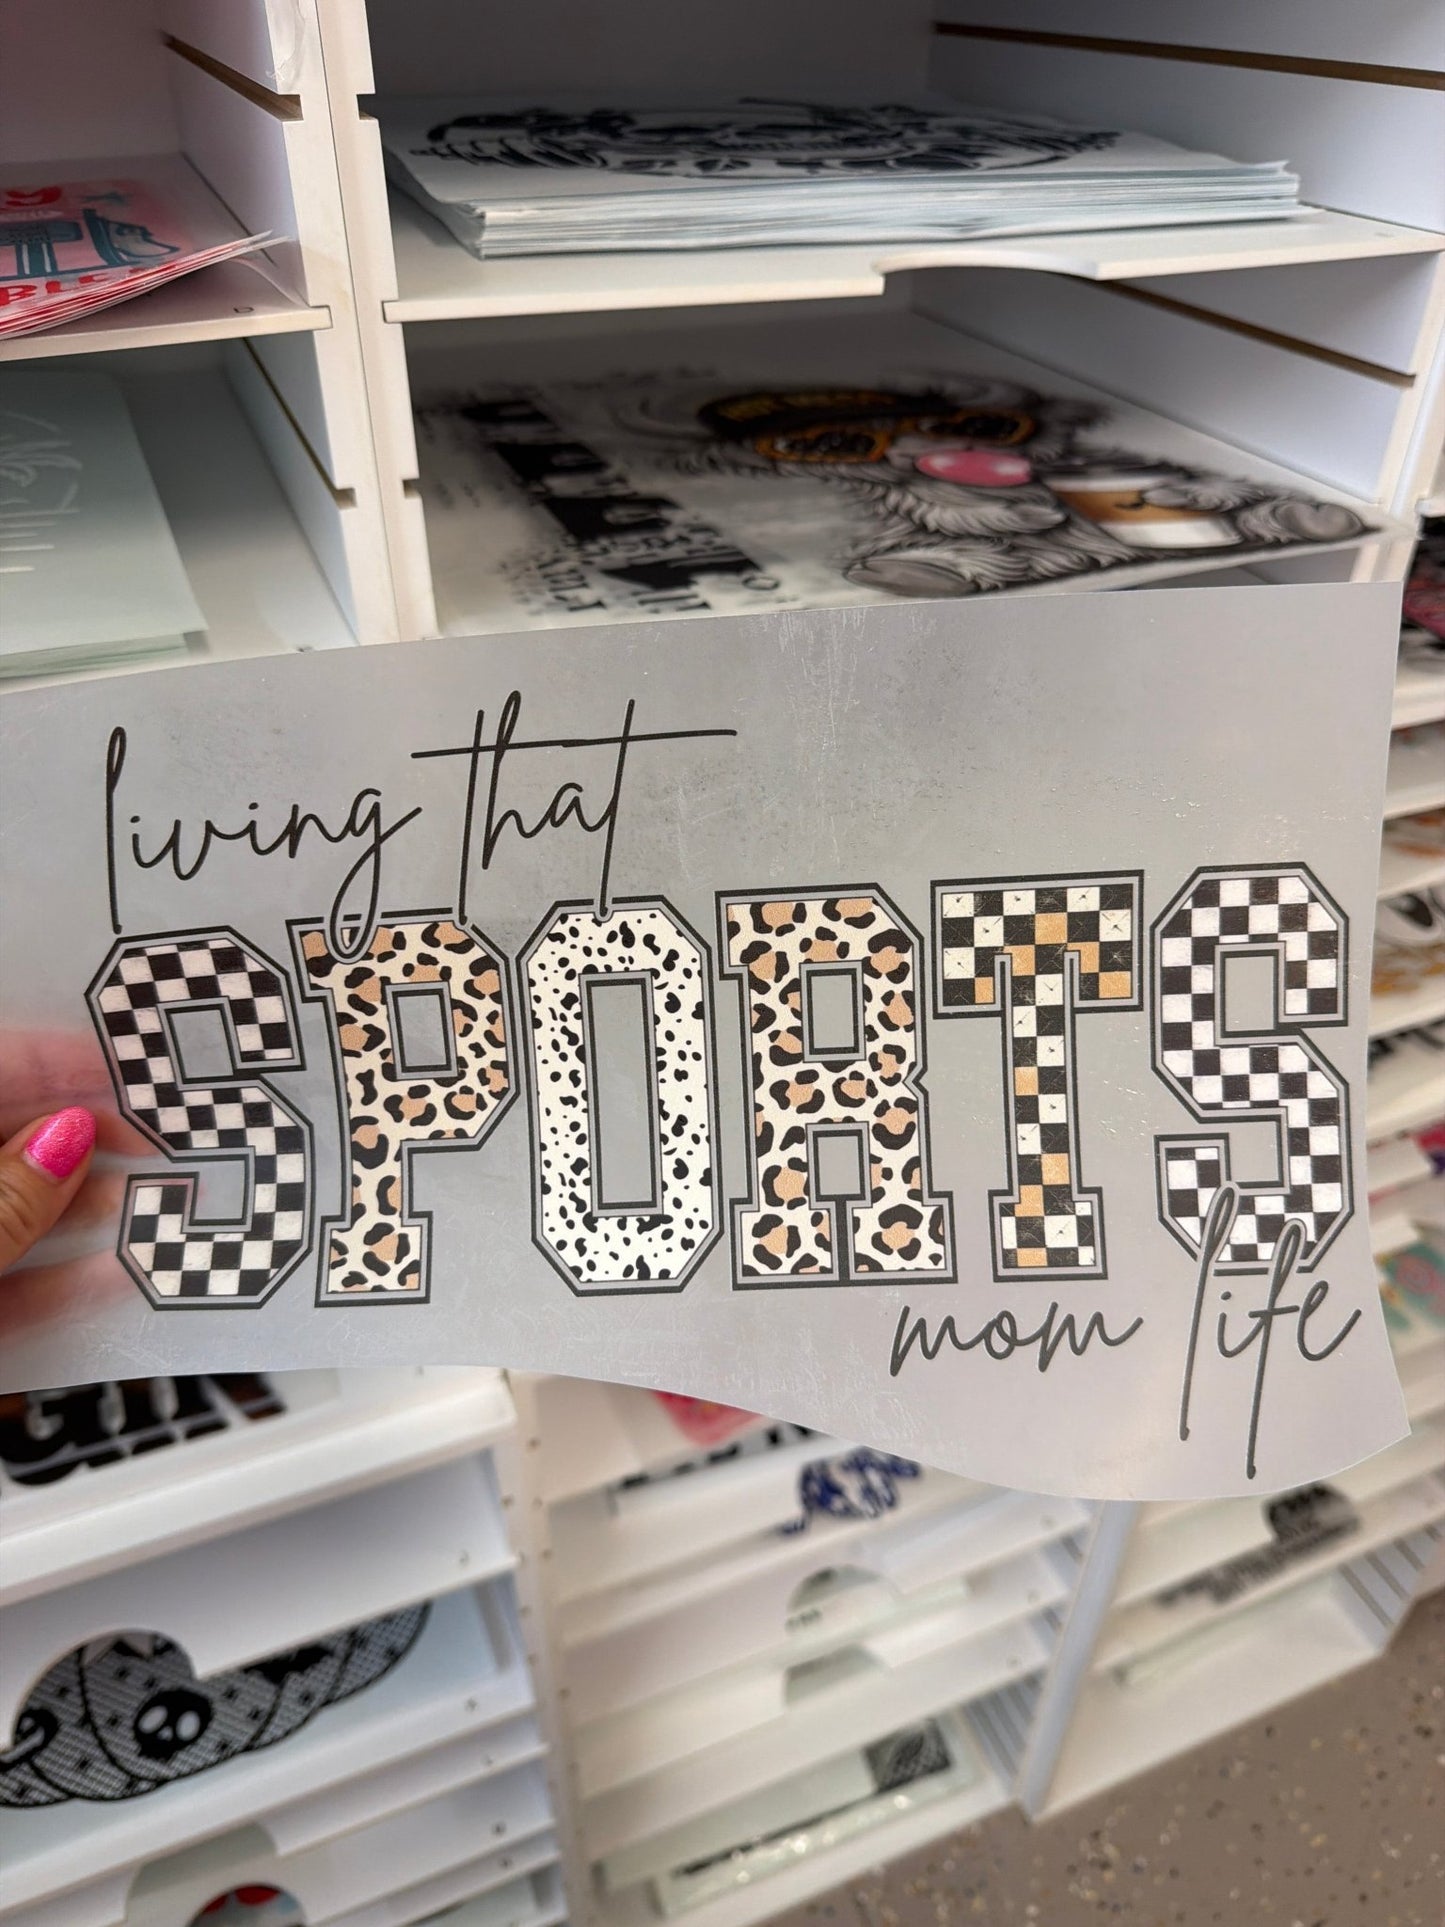 living that
SPORTS
mom life